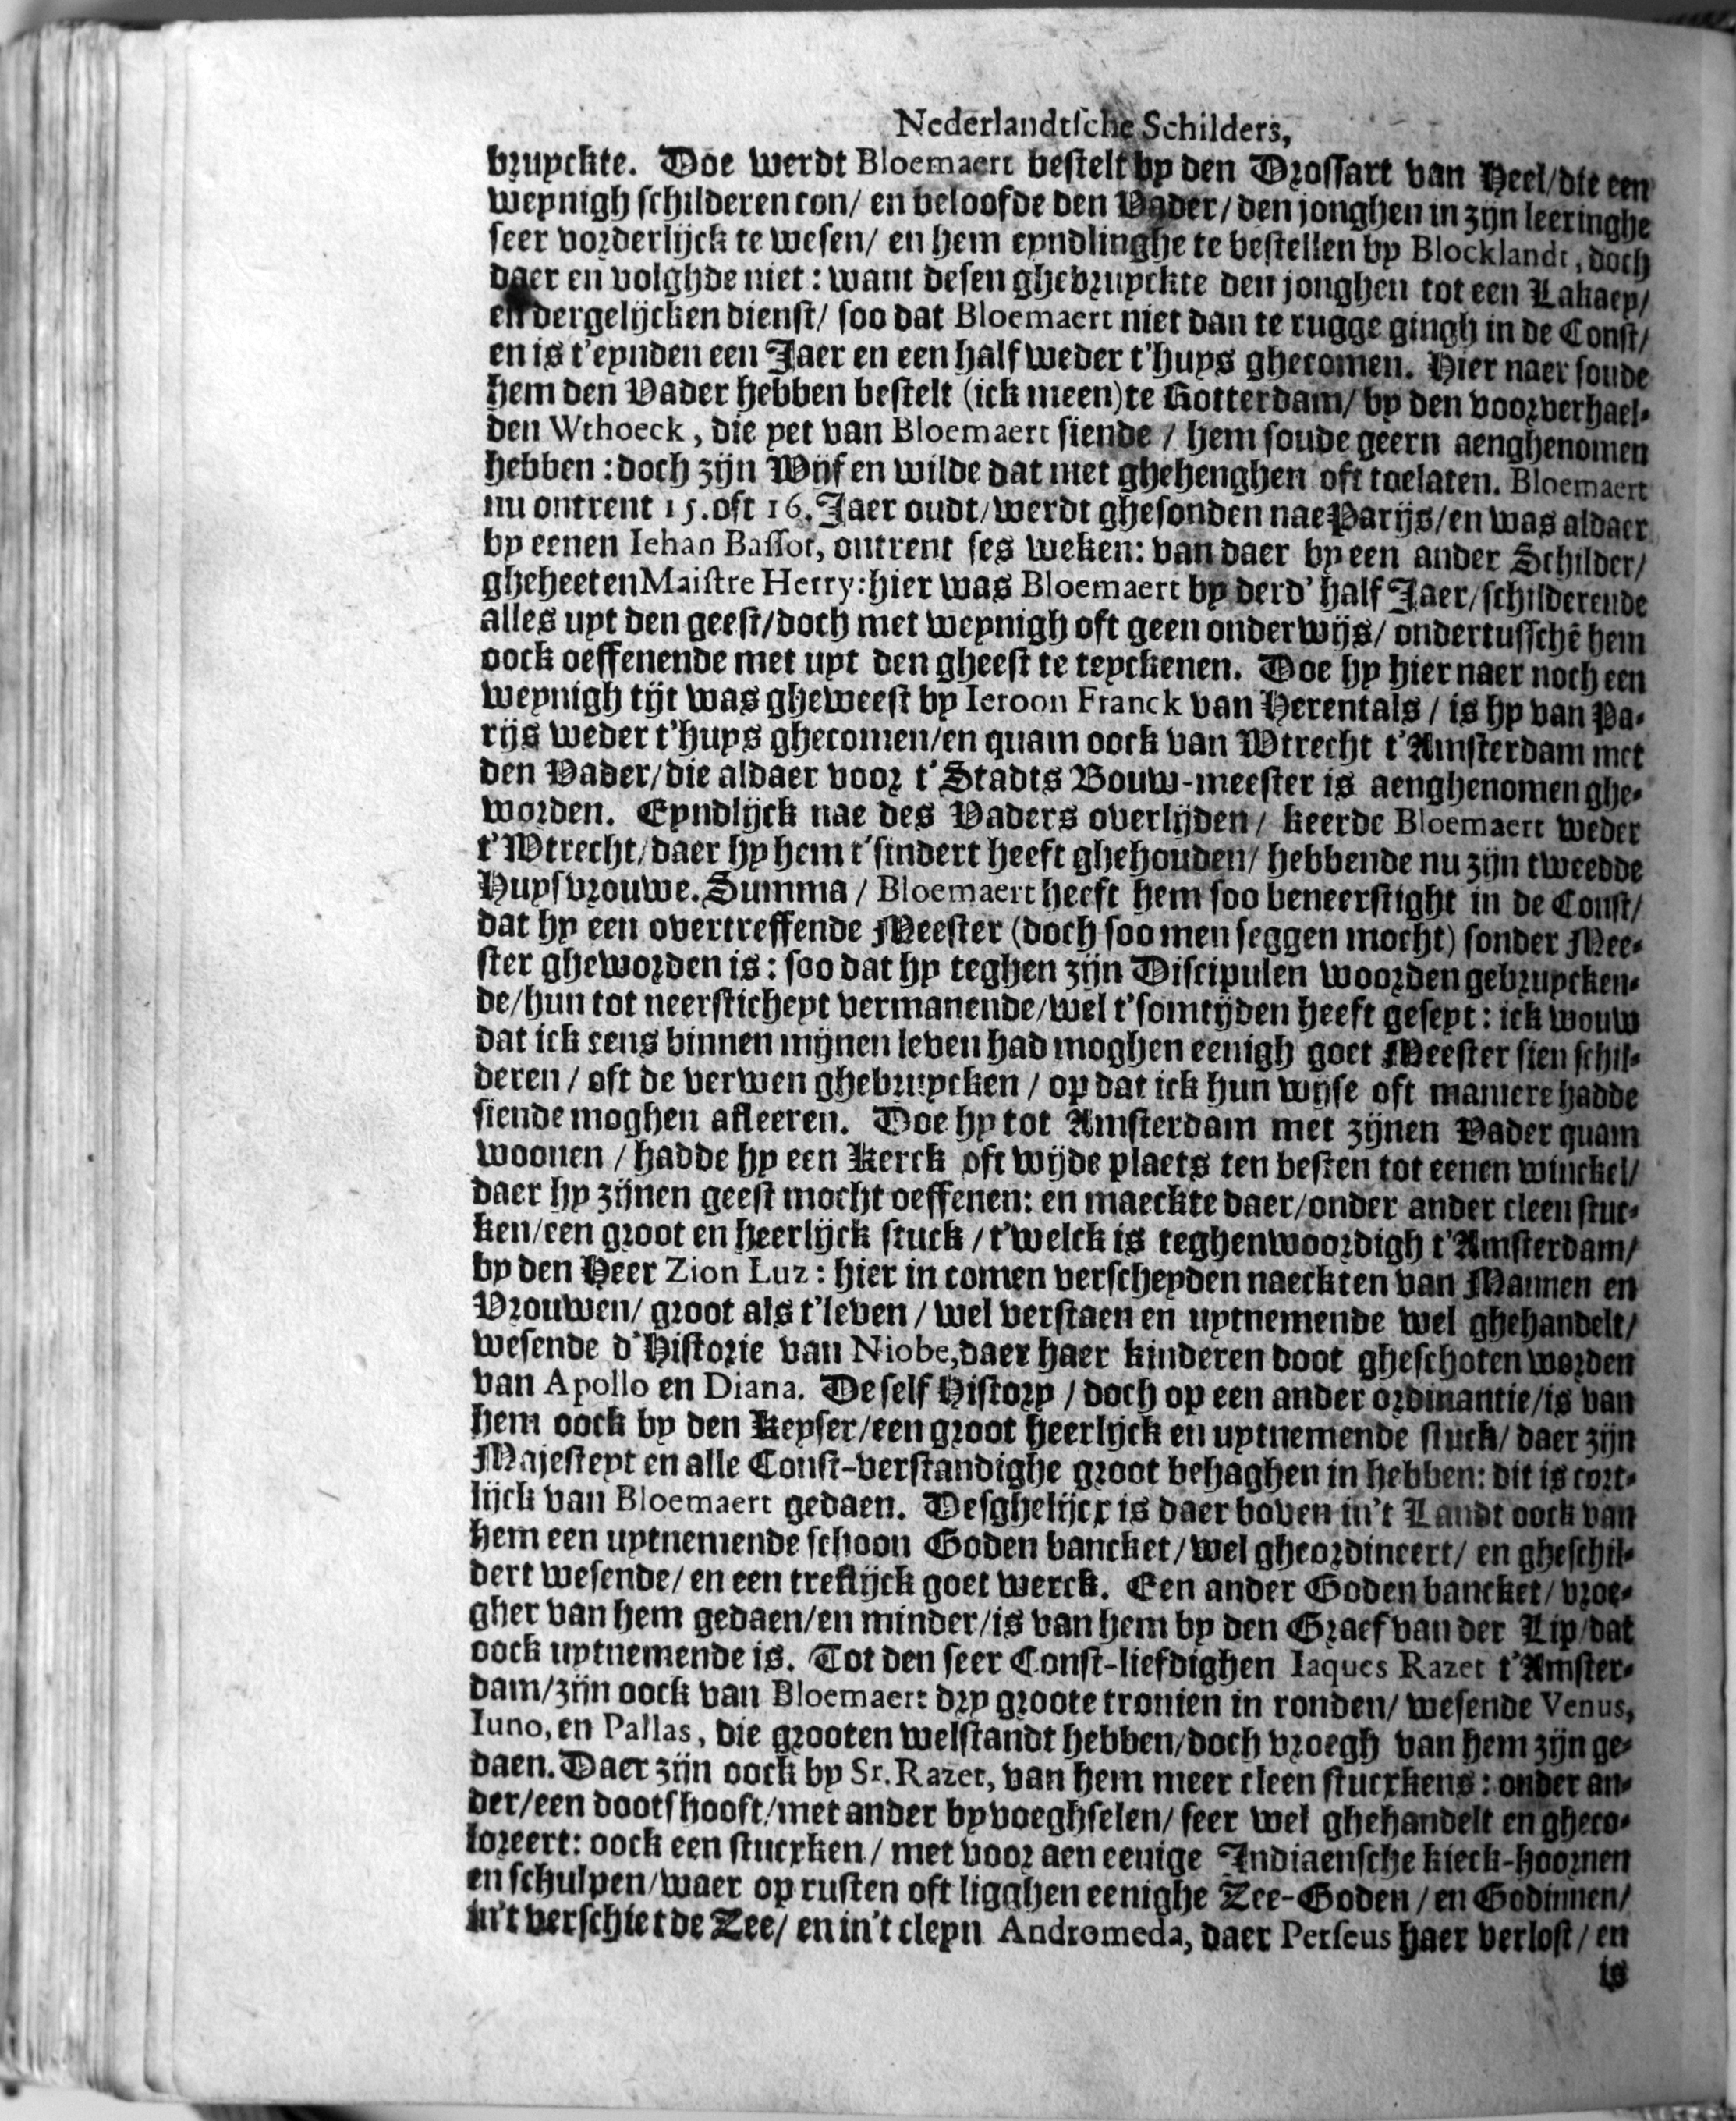 Nederlandtsche Schilders,
bruyckte. Doe werdt Bloemaert bestelt by den Drossart van Heel/die een
weynigh schilderen con/ en beloofde den Vader/ den jonghen in zijn leeringhe
seer vorderlijck te wesen/ en hem eyndlinghe te bestellen by Blocklandt, doch
daer en volghde niet: want desen ghebruyckte den jonghen tot een Lakaey/
en dergelijcken dienst/ soo dat Bloemaert niet dan te rugge gingh in de Const/
en is t'eynden een Jaer en een half weder t'huys ghecomen. Hier naer soude
hem den Vader hebben bestelt (ick meen) te Rotterdam/ by den voorverhael-
den Wthoeck, die yet van Bloemaert siende / hem soude geern aenghenomen
hebben: doch zijn Wijf en wilde dat niet ghehenghen oft toelaten. Bloemaert
nu ontrent 15. oft 16. Jaer oudt/ werdt ghesonden nae Parijs/ en was aldaer
by eenen Iehan Bassot, ontrent ses weken: van daer by een ander Schilder/
gheheeten Maistre Herry: hier was Bloemaert by derd' half Jaer/ schilderende
alles uyt den geest/ doch met weynigh oft geen onderwijs/ ondertusschē hem
oock oeffenende met uyt den gheest te teyckenen. Doe hy hier naer noch een
weynigh tijt was gheweest by Ieroon Franck van Herentals / is hy van Pa-
rijs weder t'huys ghecomen/ en quam oock van Wtrecht t'Amsterdam met
den Vader/ die aldaer voor t'Stadts Bouw-meester is aenghenomen ghe-
worden. Eyndlijck nae des Vaders overlijden/ keerde Bloemaert weder
t'Wtrecht/ daer hy hem t'sindert heeft ghehouden/ hebbende nu zijn tweedde
Huysvrouwe. Summa / Bloemaert heeft hem soo beneerstight in de Const/
dat hy een overtreffende Meester (doch soo men seggen mocht) sonder Mee-
ster gheworden is: soo dat hy teghen zijn Discipulen woorden gebruycken-
de/ hun tot neersticheyt vermanende/ wel t'somtijden heeft geseyt: ick wouw
dat ick eens binnen mijnen leven had moghen eenigh goet Meester sien schil-
deren / oft de verwen ghebruycken / op dat ick hun wijse oft maniere hadde
siende moghen afleeren. Doe hy tot Amsterdam met zijnen Vader quam
woonen / hadde hy een Kerck oft wijde plaets ten besten tot eenen winckel/
daer hy zijnen geest mocht oeffenen: en maeckte daer/ onder ander cleen stuc-
ken/ een groot en heerlijck stuck / t'welck is teghenwoordigh t'Amsterdam/
by den Heer Zion Luz: hier in comen verscheyden naeckten van Mannen en
Vrouwen/ groot als t'leven / wel verstaen en uytnemende wel ghehandelt/
wesende d'Historie van Niobe, daer haer kinderen doot gheschoten worden
van Apollo en Diana. De self History / doch op een ander ordinantie/ is van
hem oock by den Keyser/ een groot heerlijck en uytnemende stuck/ daer zijn
Majesteyt en alle Const-verstandighe groot behaghen in hebben: dit is cort-
lijck van Bloemaert gedaen. Desghelijcx is daer boven in't Landt oock van
hem een uytnemende schoon Goden bancket/ wel gheordineert/ en gheschil-
dert wesende/ en een treflijck goet werck. Een ander Goden bancket/ vroe-
gher van hem gedaen/ en minder/ is van hem by den Graef van der Lip/ dat
oock uytnemende is. Tot den seer Const-liefdighen Iaques Razet t'Amster-
dam/ zijn oock van Bloemaert dry groote tronien in ronden/ wesende Venus,
Iuno, en Pallas, die grooten welstandt hebben/ doch vroegh van hem zijn ge-
daen. Daer zijn oock by Sr. Razet, van hem meer cleen stucxkens: onder an-
der/ een dootshooft/ met ander byvoeghselen/ seer wel ghehandelt en gheco-
loreert: oock een stucxken / met voor aen eenige Indiaensche kieck-hoornen
en schulpen/ waer op rusten oft ligghen eenighe Zee-Goden / en Godinnen/
in't verschiet de Zee/ en in't cleyn Andromeda, daer Perseus haer verlost/ en
is